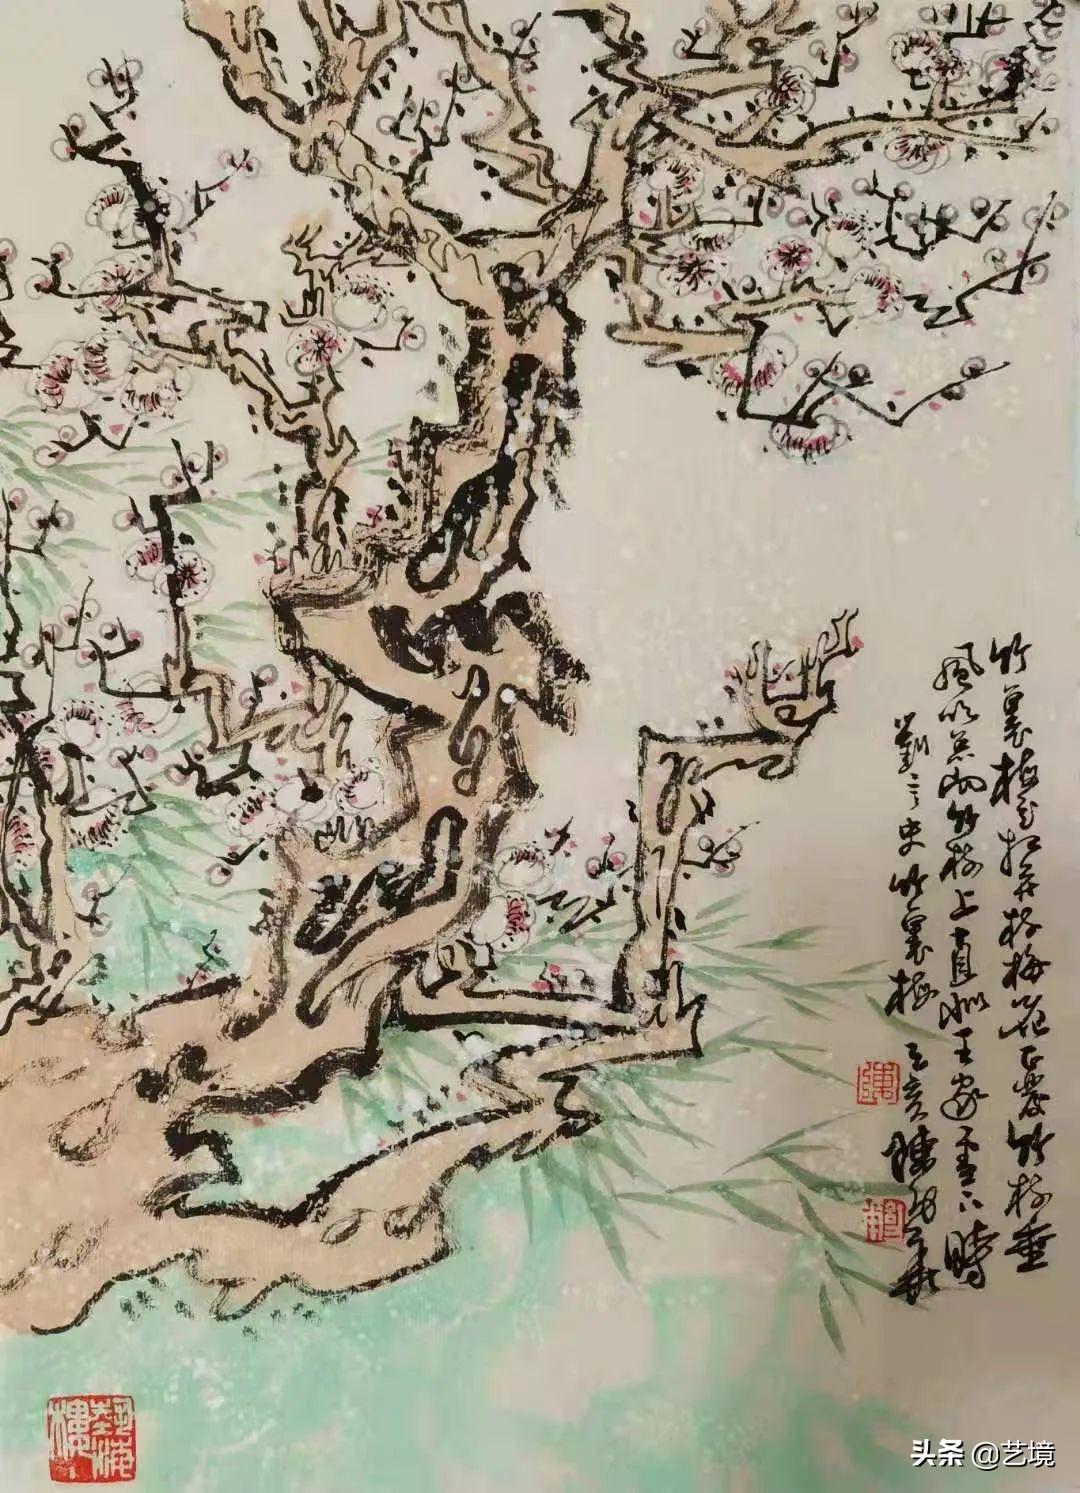 竹裏梅花相并枝梅花正發竹枝垂
風吹總向竹枝上直似王家雪下時
劉言史竹裏梅 己亥 陳
陳
藝海樓
头条 @艺境